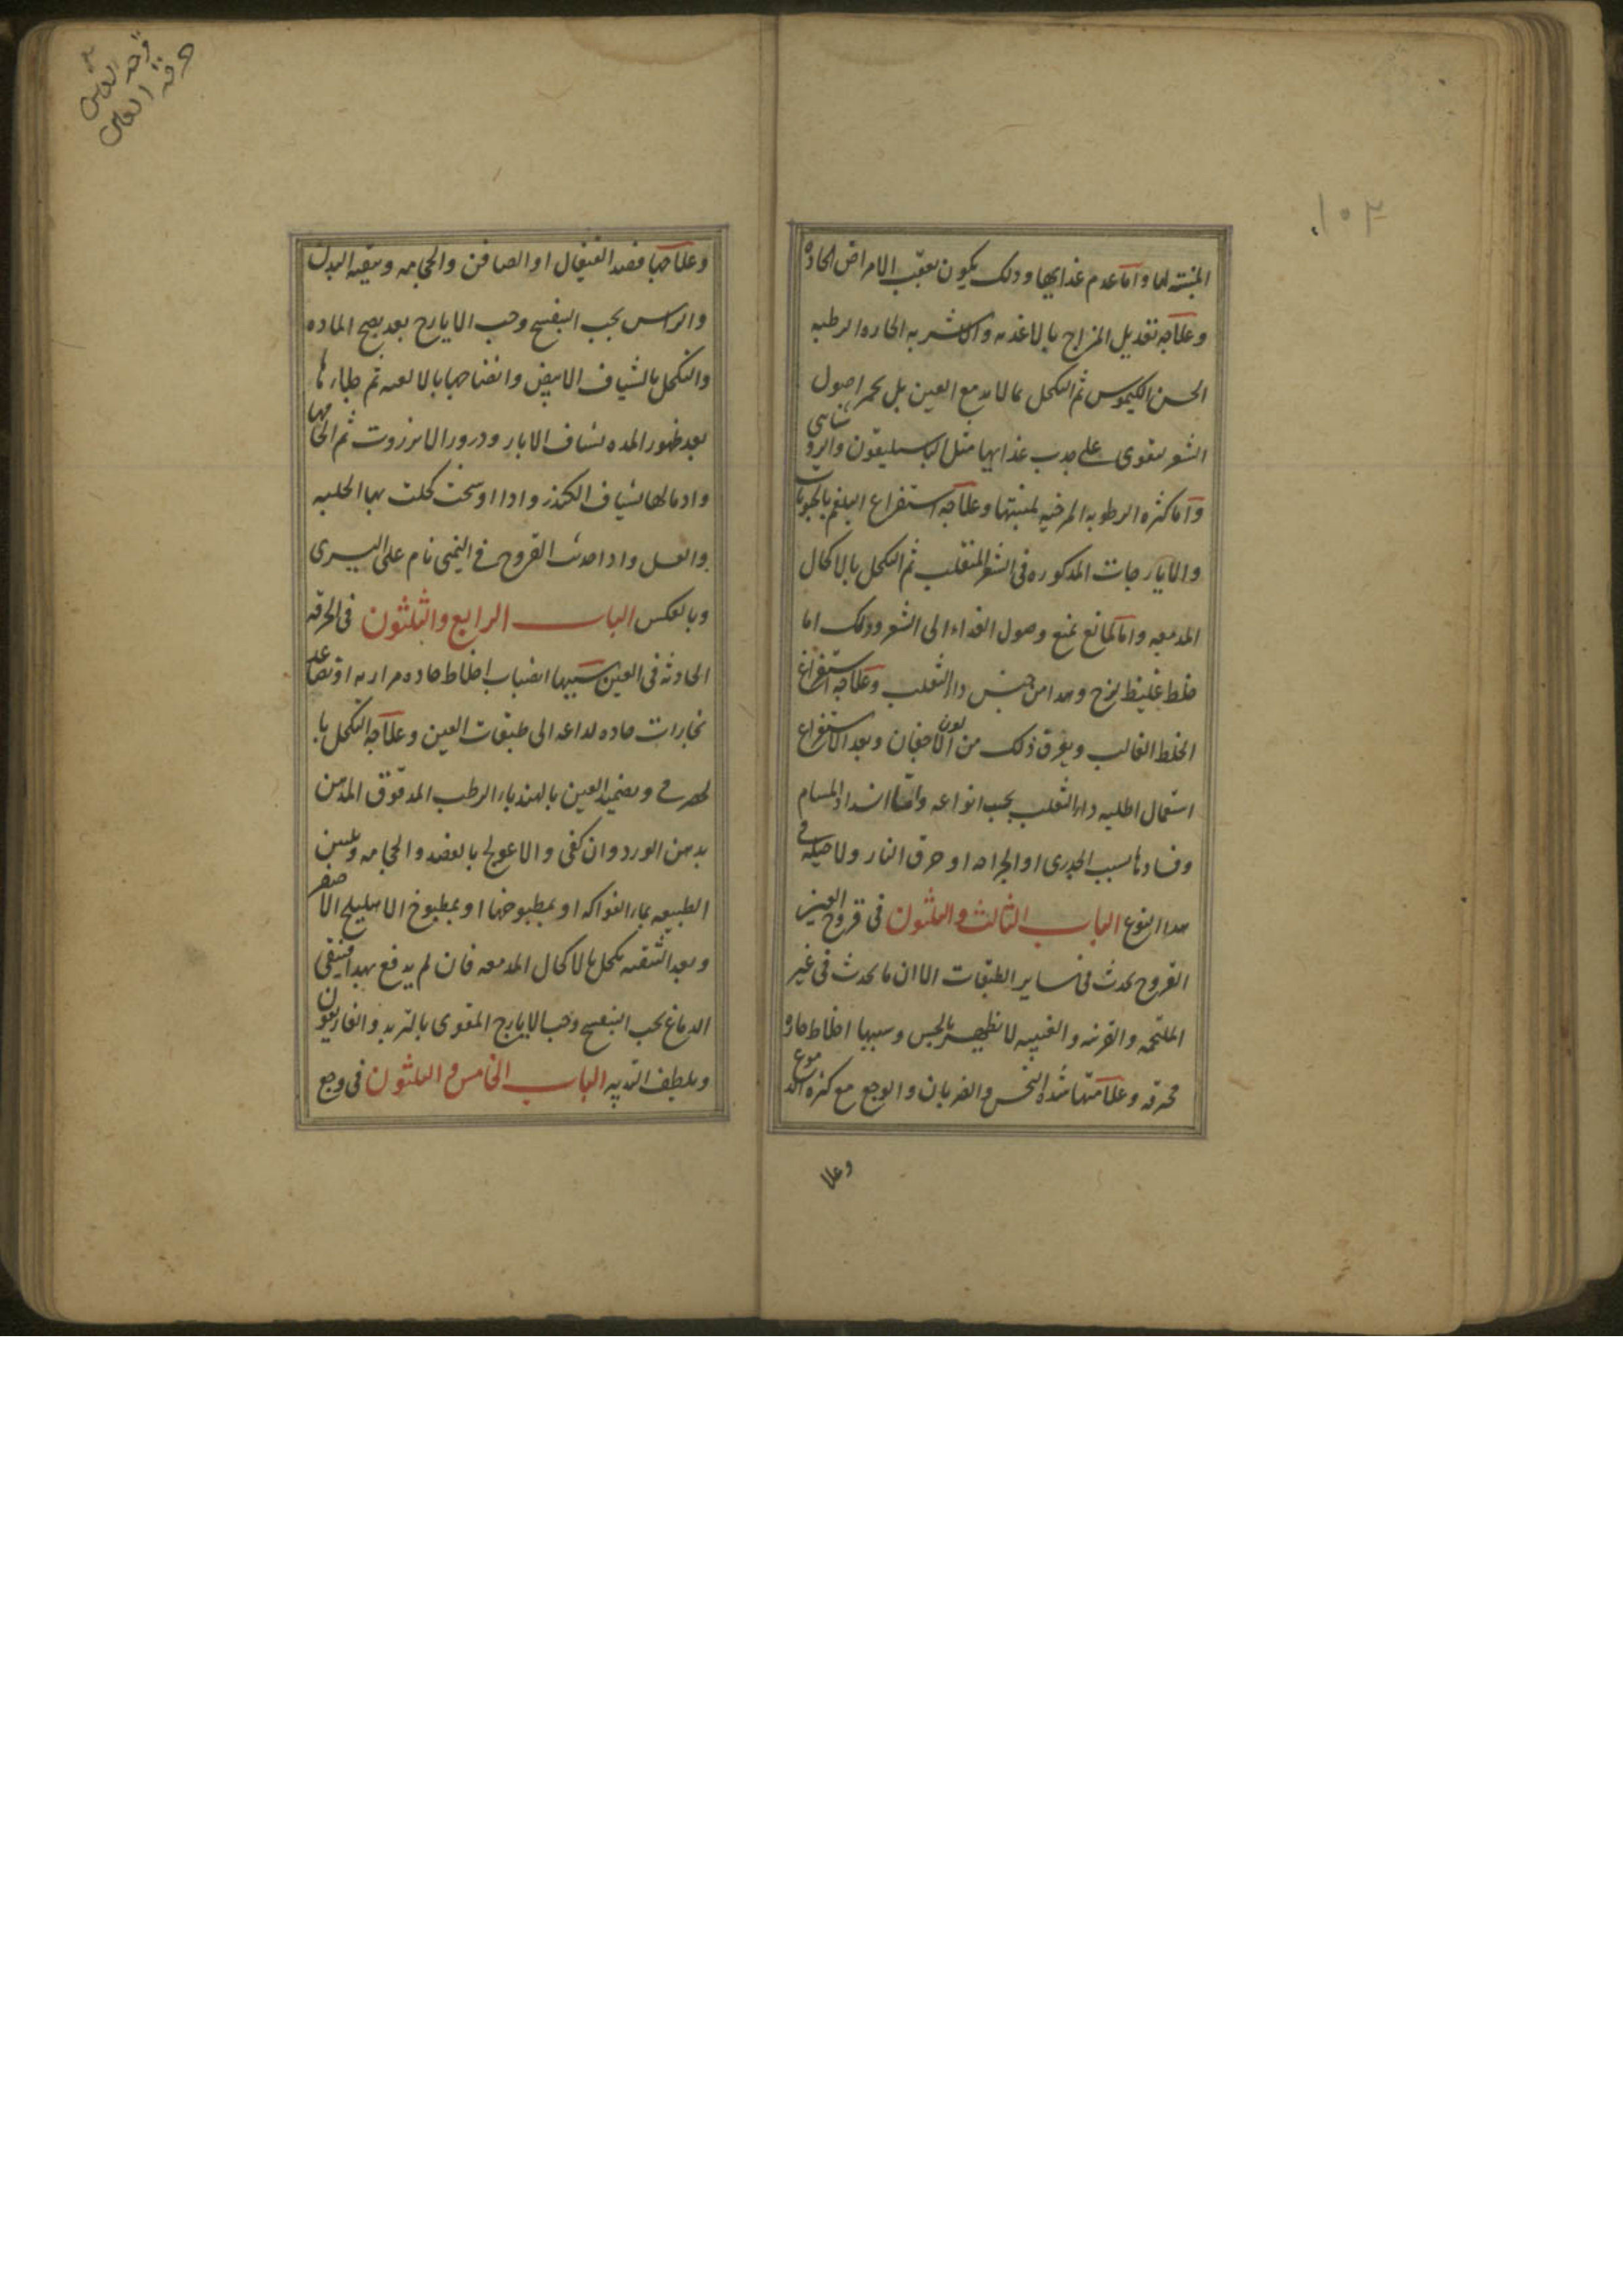 ١٠٢
المنبته لها واما عدم غذايها وذلك يكون بعقب الامراض الحاده
وعلاجه تعديل المزاج بالاغذيه والاشربه الحاره الرطبه
الحسن الكيموس ثم التكحل بما لا يدمع العين بل يحمر اصول
الشعر ليقوى على جدب غذايها مثل الباسليقون والروشناى
واما كثره الرطوبه المرخيه لمنبتها وعلاجه استفراغ البلغم بالحبوبات
والايارجات المدكوره فى الشعر المنقلب ثم التكحل بالاكحال
المدمعه واما لمانع يمنع وصول الغداء الى الشعر وذلك اما
خلط غليظ لزج وهدا من جنس داء الثعلب وعلاجه استفراغ
الخلط الغالب ويعرف ذلك من لون الاجفان وبعد الاستفراغ
استعمال اطليه داء الثعلب بحسب انواعه واما انسداد المسام
وفسادها بسبب الجدرى او الجراحه او حرق النار ولا حيله فى
هدا النوع الباب الثالث والثلثون فى قروح العين
القروح يحدث فى ساير الطبقات الا ان ما يحدث فى غير
الملتحمه والقرنيه والعنبيه لا يظهر بالحس وسببها اخلاط حاده
محرقه وعلامتها شده النخس والضربان والوجع مع كثره الدموع
وعلا
قرحة العين
حرقة العين
وعلاجها فصد القيفال او الصافن والحجامه وتنقيه البدن
والراس بحب البنفسج وحب الايارج بعد نضج الماده
والتكحل بالشياف الابيض وانضاجها بالالعبه ثم جلاءها
بعد ظهور المده بشياف الابار ودرور الانزروت ثم الحامها
وادمالها بشياف الكندر وادا اوسخت كحلت بها الحلبه
والعسل وادا حدثت القروح فى اليمنى نام على اليسرى
وبالعكس الباب الرابع والثلثون فى الحرقه
الحادثه فى العين سببها انصباب اخلاط حاده مراريه او تصاعد
بخارات حاده لداعه الى طبقات العين وعلاجه التكحل با
لحصرمى وتضميد العين بالهندباء الرطب المدقوق المدهن
بدهن الورد وان كفى والا عولج بالفصد والحجامه وتليين
الطبيعه بماء الفواكه او بمطبوخها او بمطبوخ الاهليلج الاصفر
وبعد التنقيه يكحل بالاكحال المدمعه فان لم يدفع بهدا فينقى
الدماغ بحب البنفسج وحب الايارج المقوى بالتربد والغاريقون
ويلطف التدبير الباب الخامس والثلثون فى وجع